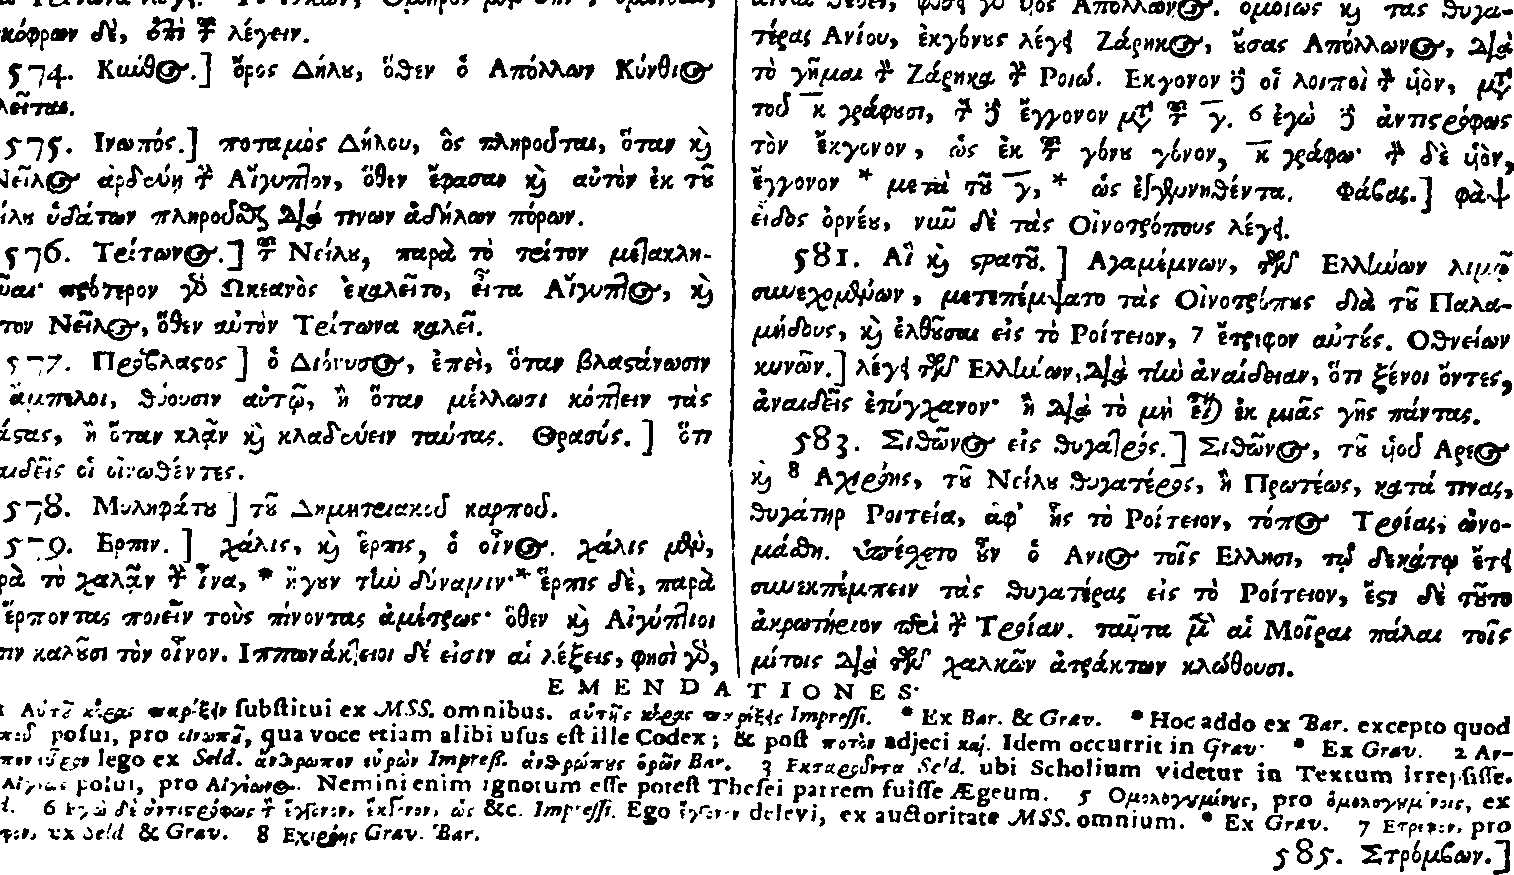 κόφρων δὲ, ἐπὶ τοῦ λέγειν.
574. Κυῦθος.] ὄρος Δήλου, ὅθεν ὁ Ἀπόλλων Κύνθιος
λεῖται.
575. Ινωπός.] ποταμὸς Δήλου, ὃς πληροῦται, ὅταν καὶ
Νεῖλος ἀρδεύῃ τὴν Αἴγυπτον, ὅθεν ἔφασαν καὶ αὐτὸν ἐκ τοῦ
ίλου ὑδάτων πληροῦσθαι διά τινων ἀδήλων πόρων.
576. Τρίτωνος.] τοῦ Νείλου, παρὰ τὸ τρίτον μετακλη-
πρότερον γὰρ Ωκεανὸς ἐκαλεῖτο, εἶτα Αἴγυπτος, καὶ
τον Νεῖλος, ὅθεν αὐτὸν Τρίτωνα καλεῖ.
577. Πρόβλαστος] ὁ Διόνυσος, ἐπεὶ, ὅταν βλαστάνωσιν
ἄμπελοι, θύουσιν αὐτῷ, ἢ ὅταν μέλλωσι κόπτειν τὰς
ἢ ὅταν κλᾷν καὶ κλαδεύειν ταύτας. Θρασύς.] ὅτι
αιδεῖς οἱ οἰνωθέντες.
578. Μυληφάτου] τοῦ Δημητριακοῦ καρποῦ.
579. Ερπιν.] χάλις, καὶ ἕρπις, ὁ οἶνος. χάλις μὲν,
ρὰ τὸ χαλᾷν τὴν ἶνα, * ἤγουν τὴν δύναμιν·* ἕρπις δὲ, παρὰ
ἕρποντας ποιεῖν τοὺς πίνοντας ἀμέτρως· ὅθεν καὶ Αἰγύπτιοι
πιν καλοῦσι τὸν οἶνον. Ιππωνάκτειοι δέ εἰσιν αἱ λέξεις, φησὶ γὰρ,
Απόλλωνος. ὁμοίως καὶ τὰς θυγα-
τέρας Ανίου, ἐκγόνους λέγει Ζάρηκος, οὔσας Απόλλωνος, διὰ
τὸ γῆμαι τὸν Ζάρηκα τὴν Ροιώ. Εκγονον δὲ οἱ λοιποὶ τὸν υἱὸν, μετὰ
τοῦ κ γράφουσι, τὸν δὲ ἔγγονον μετὰ τοῦ γ. 6 ἐγὼ δὲ ἀντιστρόφως
τὸν ἔκγονον, ὡς ἐκ τοῦ γόνου γόνον, κ γράφω· τὸν δὲ υἱὸν,
ἔγγονον * μετὰ τοῦ γ, * ὡς ἐγγυνηθέντα. Φάβας.] φὰψ
εἶδος ὀρνέου, νυῦ δὲ τὰς Οἰνοτρόπους λέγει.
581. Αἳ καὶ στρατοῦ.] Αγαμέμνων, τῶν Ελλήνων λιμῷ
συνεχομένων, μετεπέμψατο τὰς Οἰνοτρόπους διὰ τοῦ Παλα-
μήδους, καὶ ἐλθοῦσαι εἰς τὸ Ροίτειον, 7 ἔτριφον αὐτούς. Οθνείων
κυνῶν.] λέγει τῶν Ελλήνων, διὰ τὴν ἀναίδειαν, ὅτι ξένοι ὄντες,
ἀναιδεῖς ἐτύγχανον· ἢ διὰ τὸ μὴ εἶναι ἐκ μιᾶς γῆς πάντας.
583. Σιθῶνος εἰς θυγατρός.] Σιθῶνος, τοῦ υἱοῦ Αρεος
καὶ 8 Αχιρόης, τοῦ Νείλου θυγατέρος, ἢ Πρωτέως, κατά τινας,
θυγάτηρ Ροιτεία, ἀφ' ἧς τὸ Ροίτειον, τόπος Τροίας, ὠνο-
μάσθη. ὑπέσχετο οὖν ὁ Ανιος τοῖς Ελλησι, τῷ δεκάτῳ ἔτει
συνεκπέμπειν τὰς θυγατέρας εἰς τὸ Ροίτειον, ἔστι δὲ τοῦτο
ἀκρωτήριον περὶ τὴν Τροίαν. ταῦτα μὲν αἱ Μοῖραι πάλαι τοῖς
μίτοις διὰ τῶν χαλκῶν ἀτράκτων κλώθουσι.
EMENDATIONES
substitui ex MSS. omnibus. Impressi. * Ex Bar. & Grav. * Hoc addo ex Bar. excepto quod
posui, pro qua voce etiam alibi usus est ille Codex; & post ποτὸν adjeci καί. Idem occurrit in Grav. * Ex Grav. 2 Αν-
lego ex Seld. ἄνθρωπον εὑρὼν Impress. ἀνθρώπους ὁρῶν Bar. 3 Εκταρόδντα Seld. ubi Scholium videtur in Textum irrepsisse.
posui, pro Αἰγίωνος. Nemini enim ignotum esse potest Thesei patrem fuisse Ægeum. 5 Ομολογουμένους, pro ὁμολογουμένοις, ex
6 Εγὼ δὲ ἀντιστρόφως τὸν ἔγγονον, ἔκγονον, ὡς &c. Impressi. Ego ἔγγονον delevi, ex auctoritate MSS. omnium. * Ex Grav. 7 Ετριφον, pro
ex Seld & Grav. 8 Εχιρόης Grav. Bar.
585. Στρόμβων.]